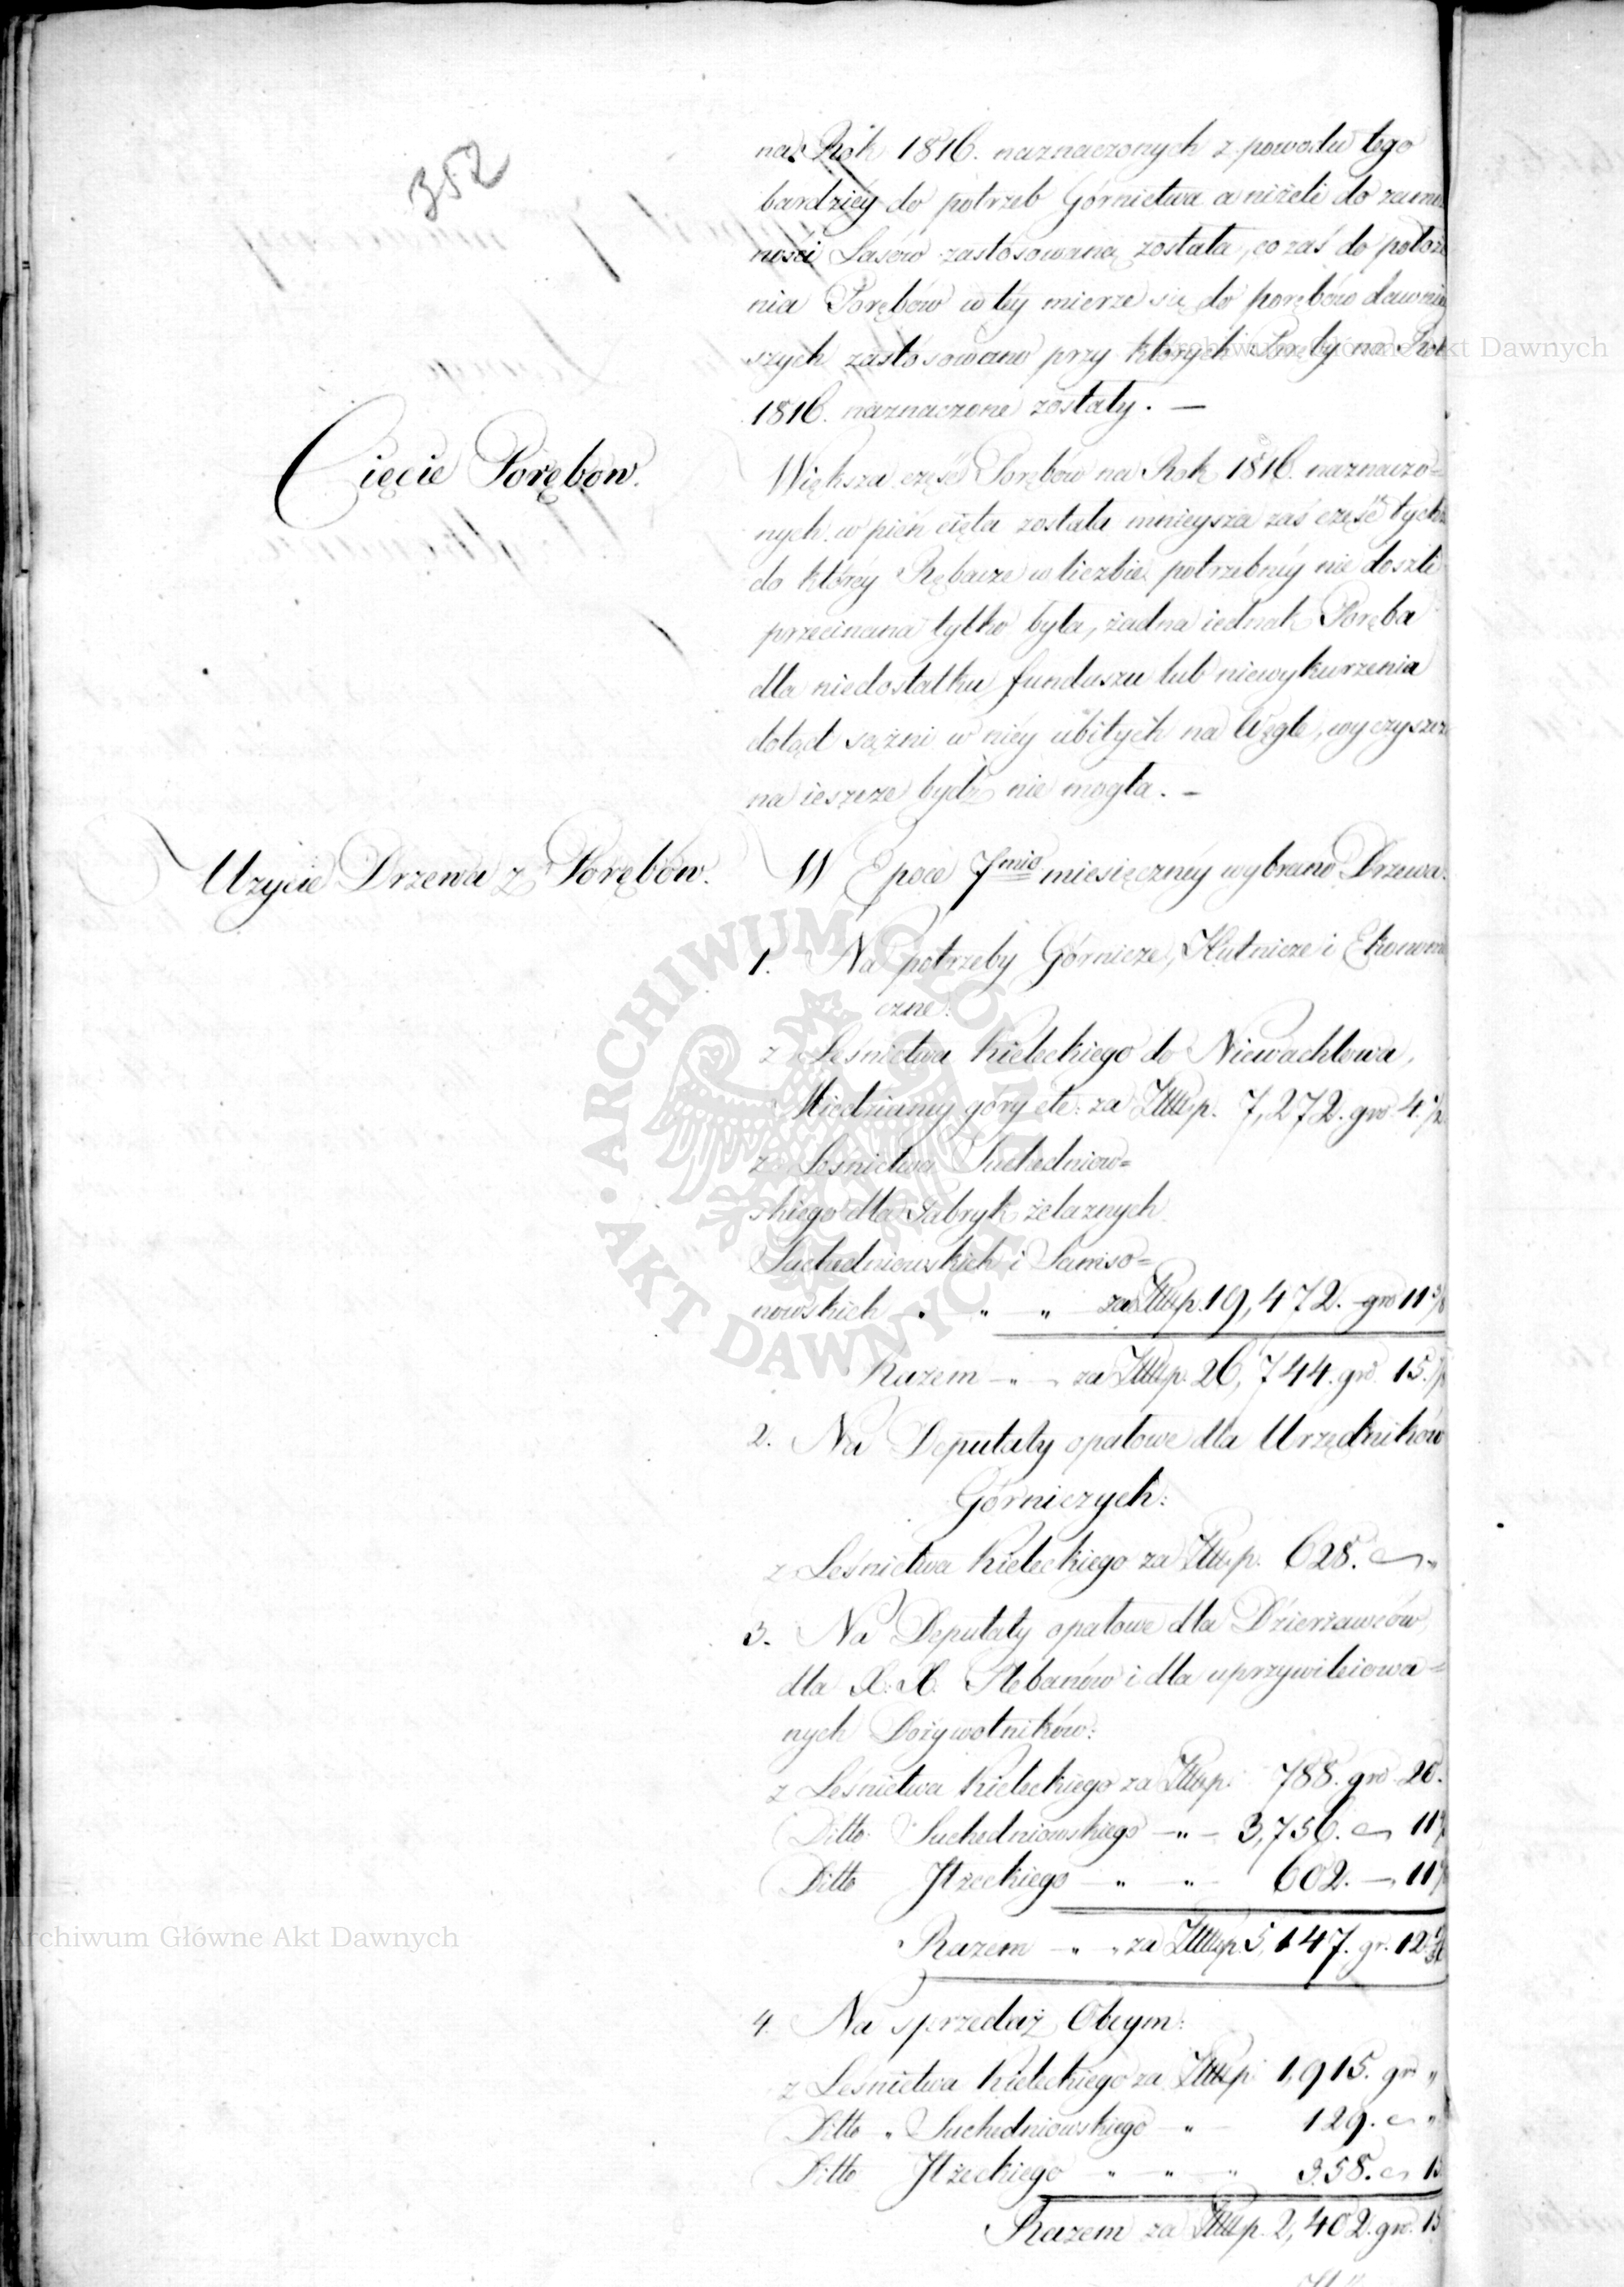 352
na Rok 1816. naznaczonych z powodu tego
bardziéy do potrzeb Górnictwa a niżeli do zamo
ności Lasów zastosowaną została, co zaś do położe
nia Porębów w téy mierze się do porębów dawniey
szych zastósowano przy których Poręby na Rok
1816. naznaczone zostały. —
Cięcie Porębow.
Większa część Porębów na Rok 1816. naznaczo=
nych w pień cięta została mnieysza zaś część tychże
do któréy Rębacze w liczbie potrzebnéy nie doszli
przecinana tylko była, żadna iednak Poręba
dla niedostatku funduszu lub niewykurzenia
dotąd sążni w niéy ubitych na Węgle, wyczyszczo
na ieszcze bydź nie mogła. —
Uzycie Drzewa z Porębów.
W Epoce 7mio miesięcznéy wybrano Drzewa.
1. Na potrzeby Górnicze, Hutnicze i Ekonomi
czne:
z Leśnictwa Kieleckiego do Niewachlowa,
Miedzianéy góry etc: za Złłłp. 7,272. gro. 4.½
z Leśnictwa Suchedniow=
skiego dla Fabryk żelaznych
Suchedniowskich i Samso=
nowskich " " " za Złłłp. 19,472. gro 11
Razem — " — za Złłłp. 26,744. gro. 15.
2. Na Deputaty opałowe dla Urzędników
Górniczych:
z Leśnictwa Kieleckiego za Złłłp. 628. — "
3. Na Deputaty opałowe dla Dzierżawców,
dla X. X. Plebanów i dla uprzywileiowa=
nych Dożywotników:
z Leśnictwa Kieleckiego za Złłłp: 788. gro 20.
Ditto Suchedniowskiego — " — 3,756. — 11
Ditto Jłżeckiego — " — " — 602. — 11
Razem — " — " za Złłłp. 5,147. gr. 12.
4. Na sprzedaż Obcym:
z Leśnictwa Kieleckiego za Złłłp 1,915. gro "
Ditto " Suchedniowskiego — " — 129. — "
Ditto Jłżeckiego — " — " — " 358. — 15
Razem za Złłłp. 2,402. gro. 15
Archiwum Główne Akt Dawnych
Archiwum Główne Akt Dawnych
ARCHIWUM GŁÓWNE AKT DAWNYCH